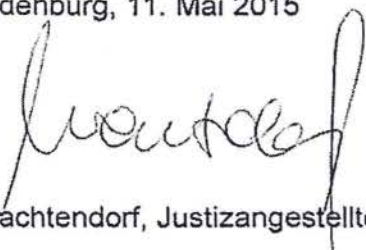 denburg, 11. Mai 2015
achtendorf, Justizangestellte